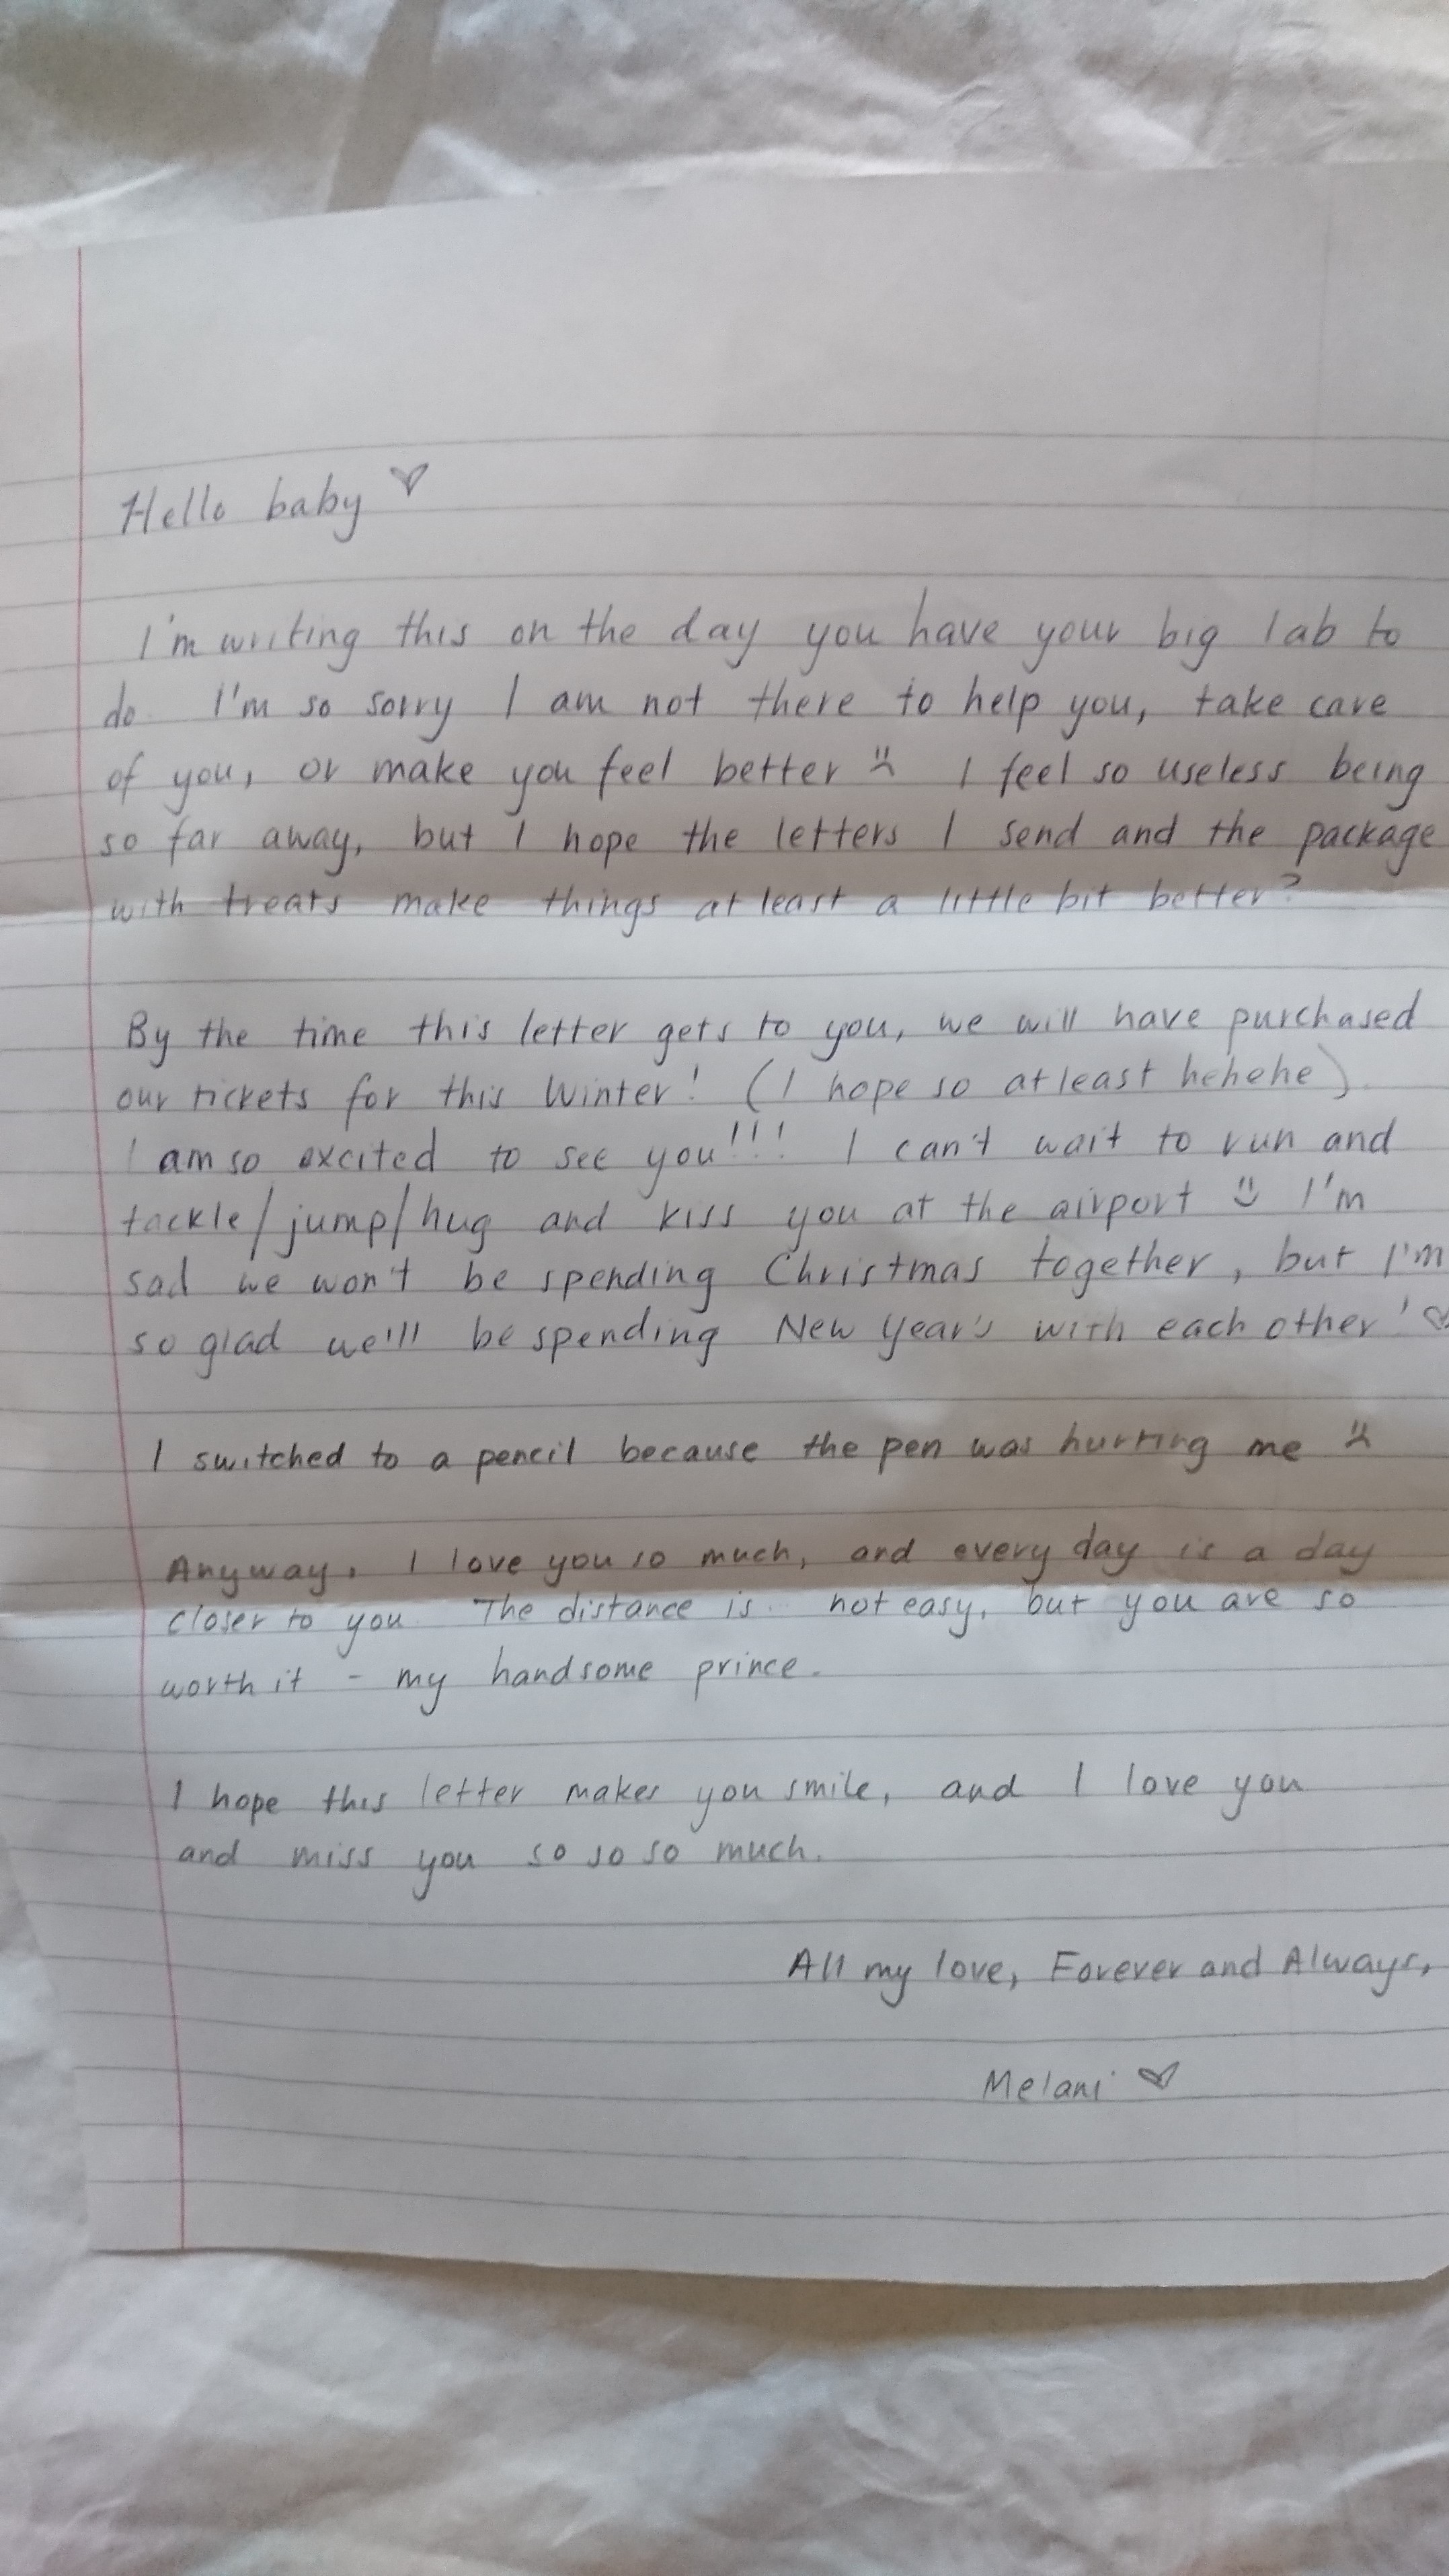 Hello baby ♡
I'm writing this on the day you have your big lab to
do. I'm so sorry I am not there to help you, take care
of you, or make you feel better :( I feel so useless being
so far away, but I hope the letters I send and the package
with treats make things at least a little bit better?
By the time this letter gets to you, we will have purchased
our tickets for this Winter! (I hope so at least hehehe).
I am so excited to see you!!! I can't wait to run and
tackle/jump/hug and kiss you at the airport :) I'm
sad we won't be spending Christmas together, but I'm
so glad we'll be spending New Year's with each other! ♡
I switched to a pencil because the pen was hurting me :(
Anyway, I love you so much, and every day is a day
closer to you. The distance is not easy, but you are so
worth it - my handsome prince.
I hope this letter makes you smile, and I love you
and miss you so so so much.
All my love, Forever and Always,
Melani ♡